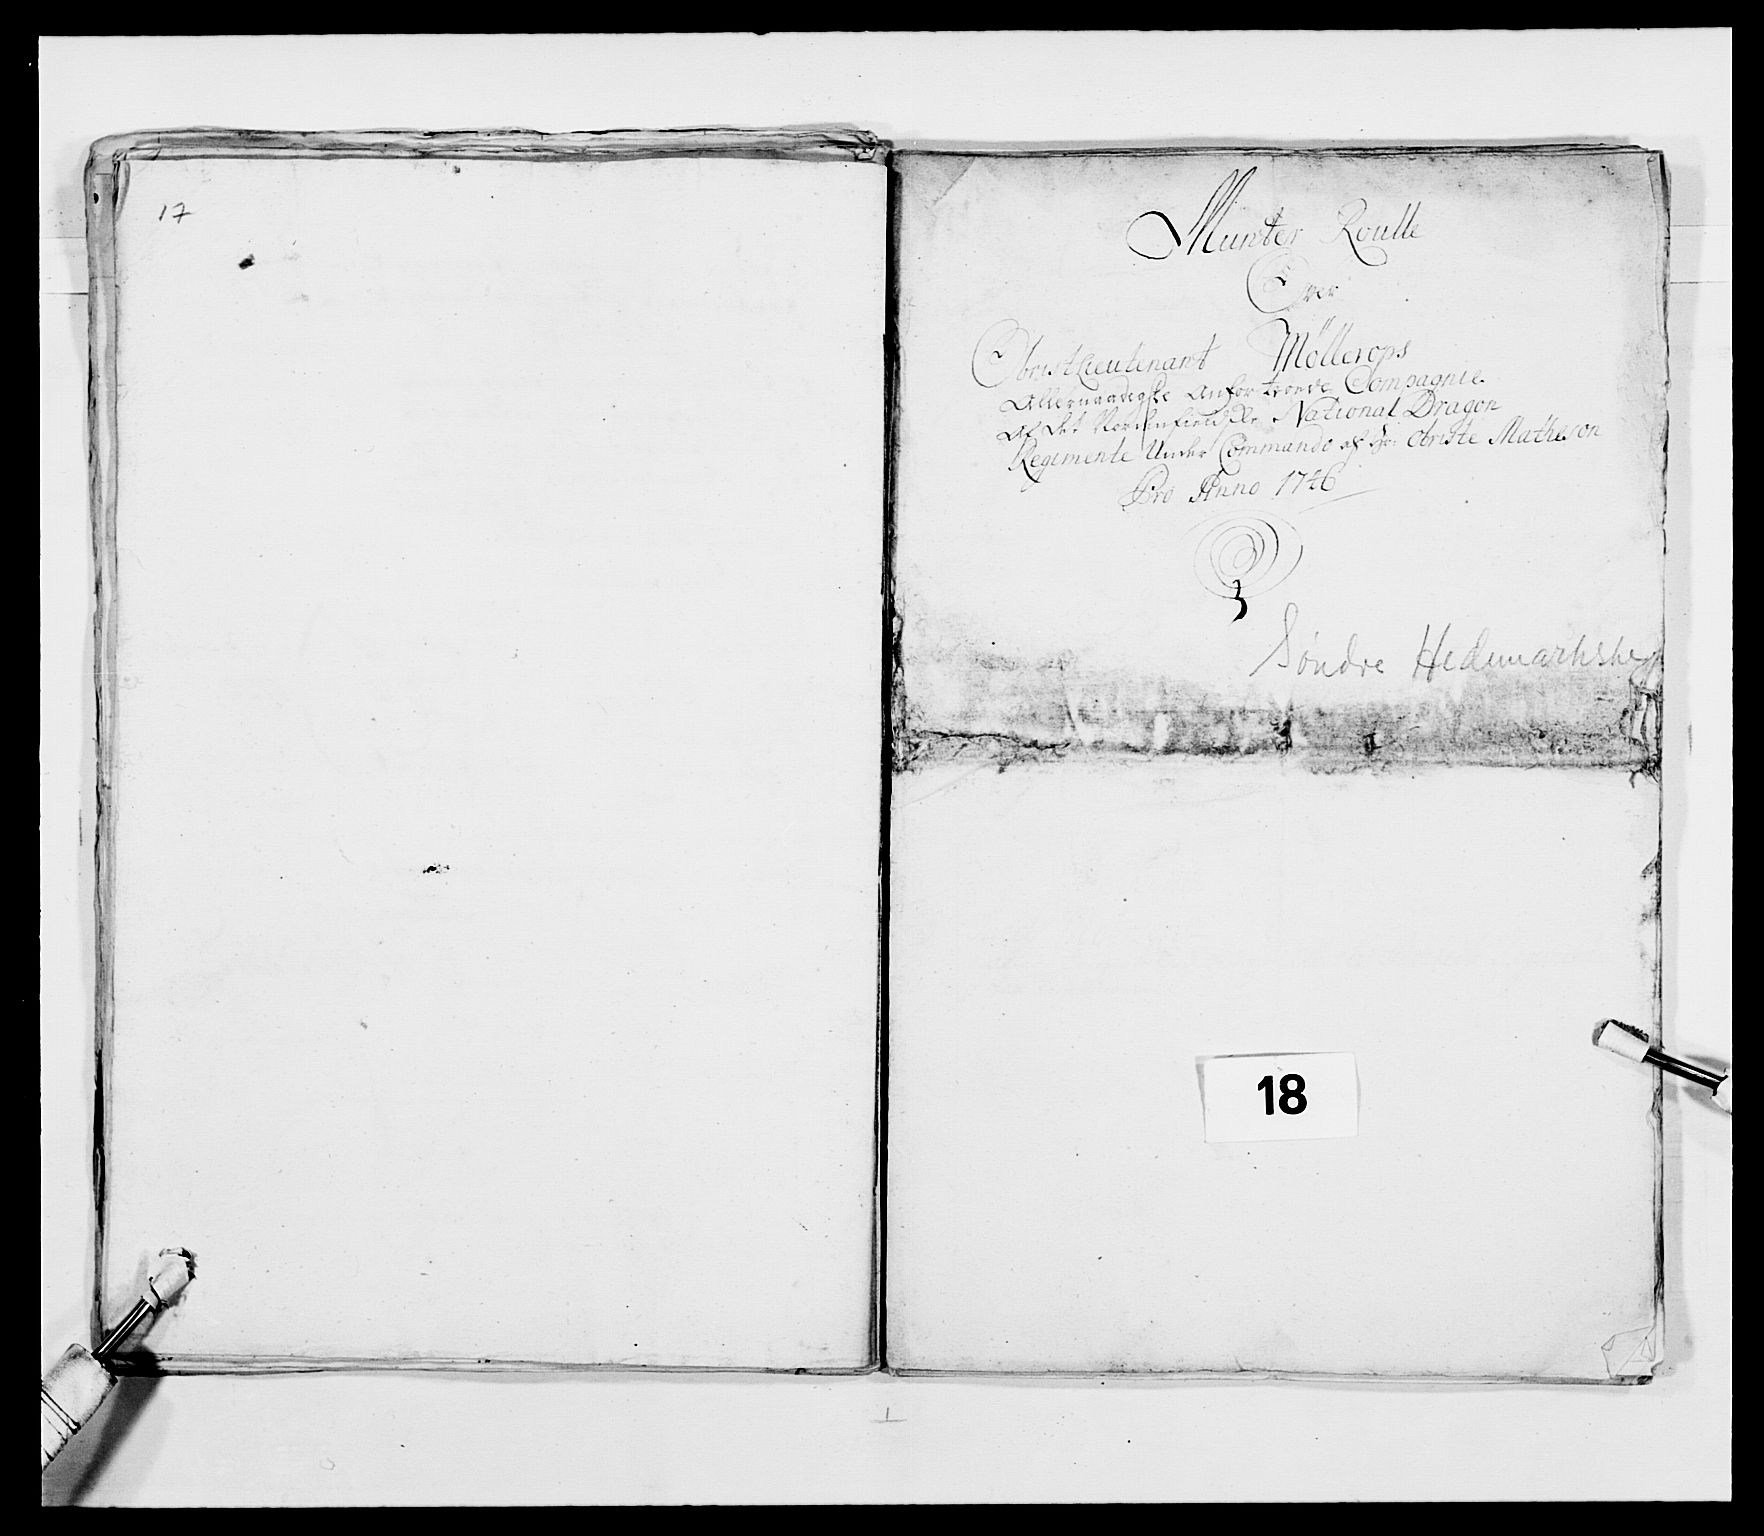 17
Munster Roulle
Over
ObristLieutenant Møllerops
Allernaadigste Anfortroede Compagnie
Af det Nordenfieldske National Dragon
Regimente Under Commando af Hr: Obriste Matheson
Pro Anno 1746
Søndre Hedemarkske
18